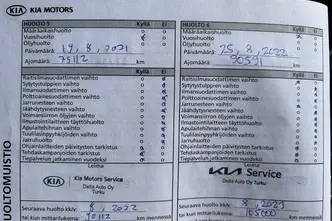 KIA KIA MOTORS
HUOLTO 5 Kyllä Ei
Määräaikaishuolto
Vuosihuolto
Öljyhuolto
Päivämäärä: 19.8.2021
Ajomäärä: 75112 km
Kyllä Ei
Raitisilmasuodattimen vaihto
Sytytystulppien vaihto
Ilmansuodattimen vaihto
Polttoainesuodattimen vaihto
Jarrunesteen vaihto
Jäähdytysnesteen vaihto
Voimansiirron öljyjen vaihto
Ilmastointilaitteen huolto
Apulaitehihnan vaihto
Tuulilasinpyyhkijöiden vaihto
Ohjainlaitteiden päivitysten tarkistus
Tehdaskampanjoiden tarkistus
Tiepalvelun jatkaminen vuodeksi
Leima
KIA Kia Motors Service
Delta Auto Oy
Turku
Seuraava huolto kk/v 8/2022
tai kun mittarilukema km mennessä
HUOLTO 6 Kyllä Ei
Määräaikaishuolto
Vuosihuolto
Öljyhuolto
Päivämäärä: 25.8.2022
Ajomäärä: 90591 km
Kyllä Ei
Raitisilmasuodattimen vaihto
Sytytystulppien vaihto
Ilmansuodattimen vaihto
Polttoainesuodattimen vaihto
Jarrunesteen vaihto
Jäähdytysnesteen vaihto
Voimansiirron öljyjen vaihto
Ilmastointilaitteen huolto
Apulaitehihnan vaihto
Tuulilasinpyyhkijöiden vaihto
Ohjainlaitteiden päivitysten tarkistus
Tehdaskampanjoiden tarkistus
Tiepalvelun jatkaminen vuodeksi
Leima
KIA Service
Delta Auto Oy
Turku
Seuraava huolto kk/v 8/2023
tai kun mittarilukema 105000 km mennessä
UOLTOMUISTIO